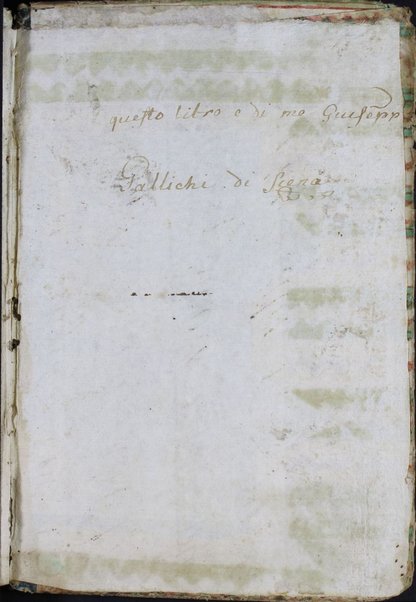 questo libro e di me Guisepp
Pallichi di Siena